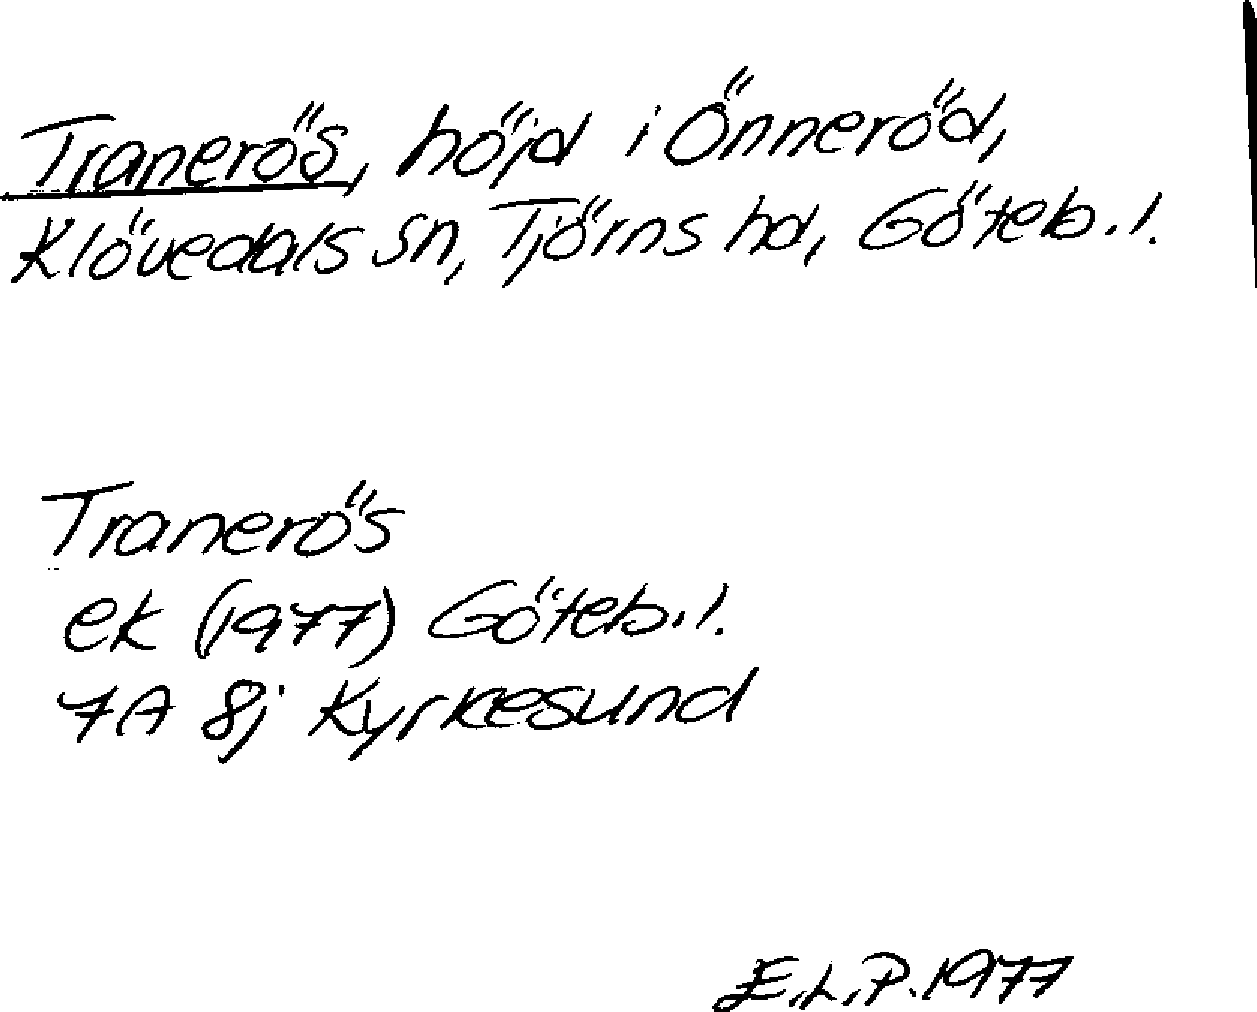 Tranerös, höjd i Önneröd,
Klövedals sn, Tjörns hd, Göteb.l.
Tranerös
ek (1977) Göteb.l.
7A 8j Kyrkesund
E.L.P. 1977